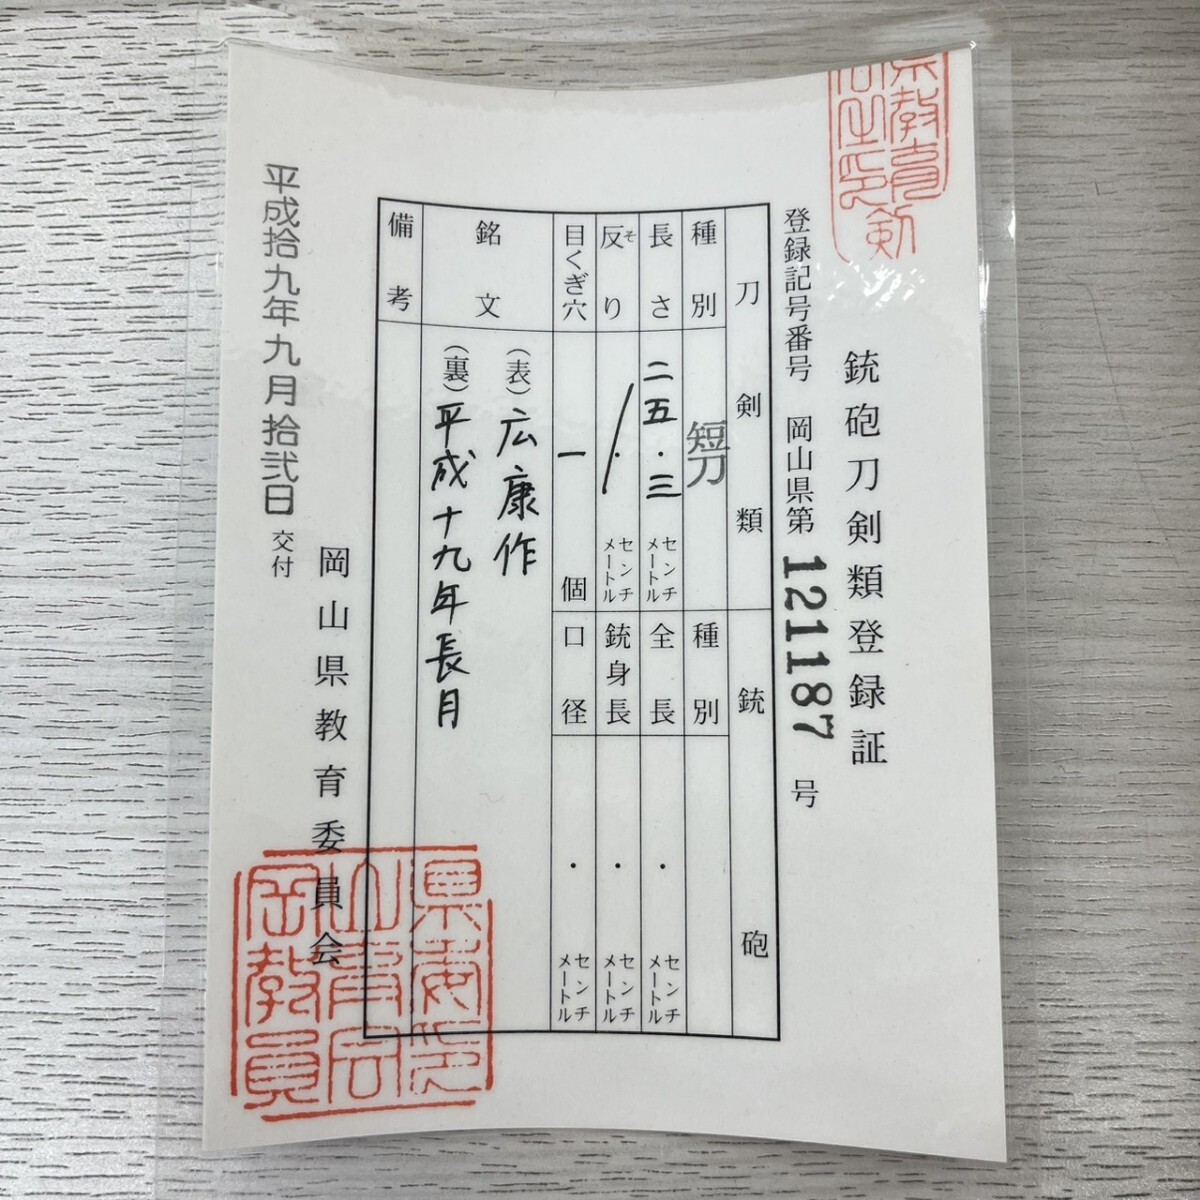 銃砲刀剣類登録証
登録記号番号 岡山県第 121187 号
刀剣類
銃砲
種別 短刀
種別
長さ 二五・三 センチメートル
全長 ・ センチメートル
反り そ ・ センチメートル
銃身長 ・ センチメートル
目くぎ穴 一 個
口径 ・ センチメートル
銘文
(表)広康作
(裏)平成十九年長月
備考
岡山県教育委員会
平成拾九年九月拾弐日 交付